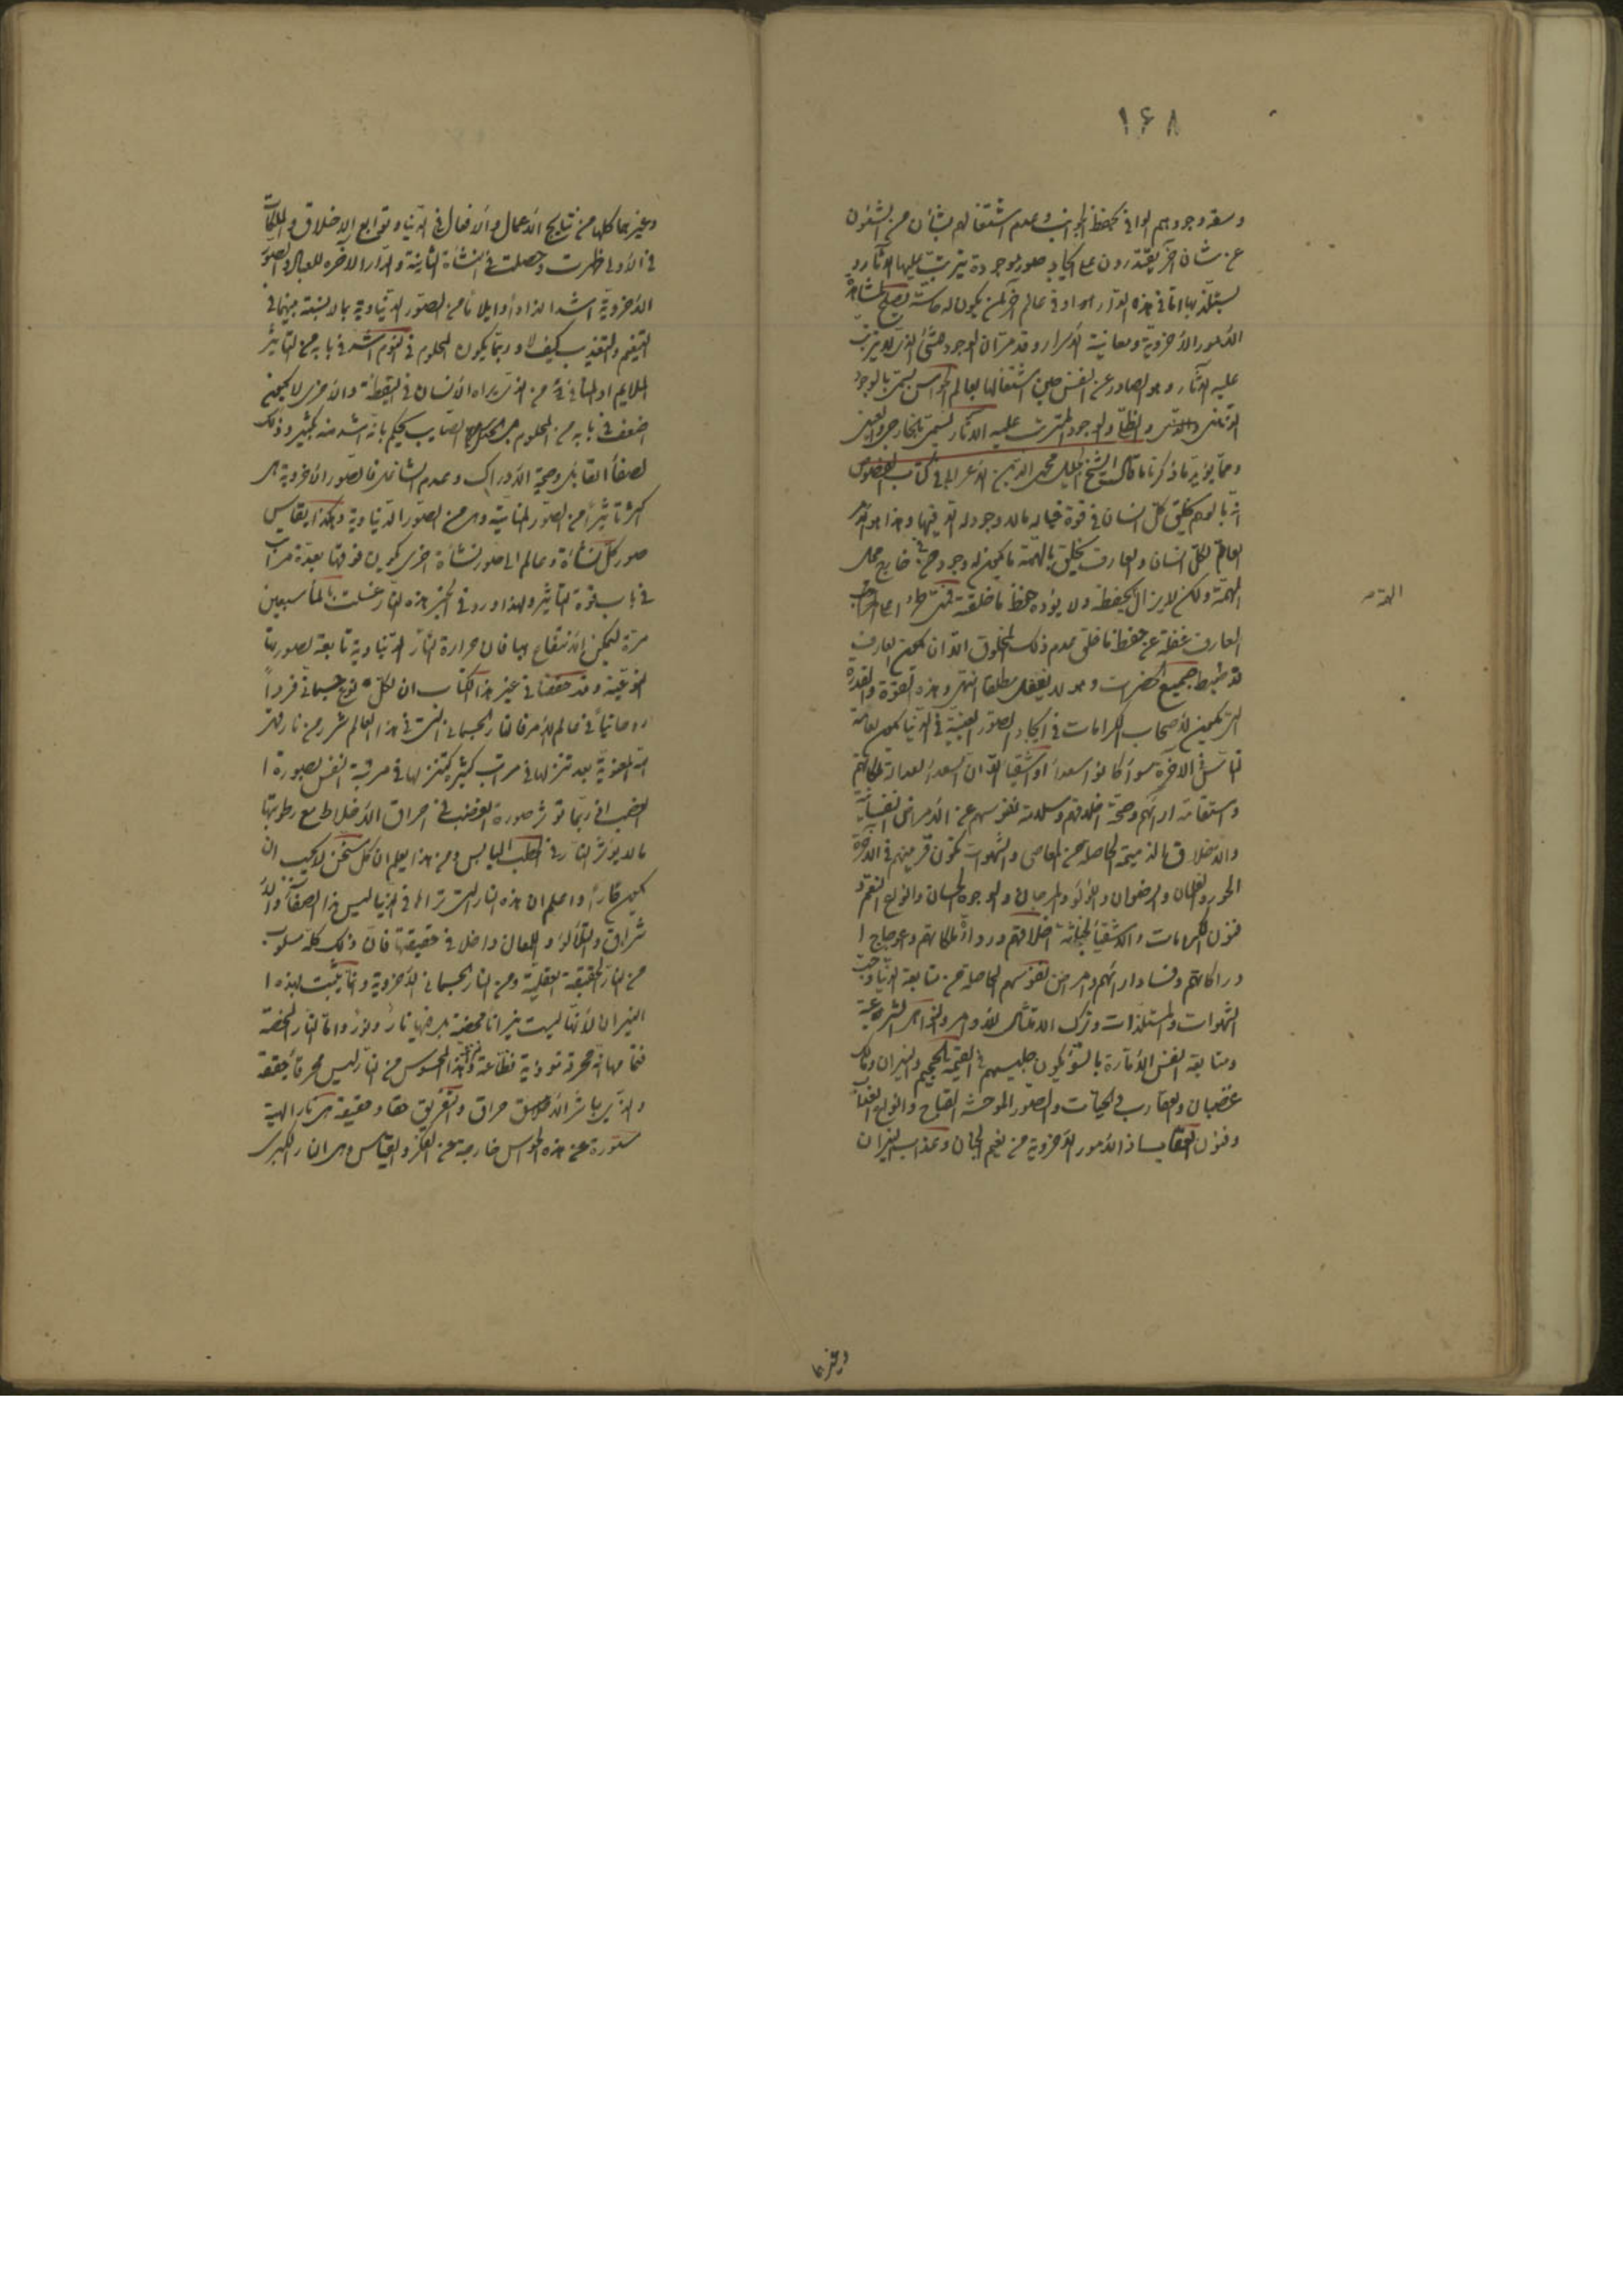 ١٦٨
وسعة وجودهم الوافي بحفظ الجوانب وعدم اشتغالهم بشأن من الشئون
عن شان آخر يقتدرون على ايجاد صور موجودة يترتب عليها الآثار و
يستلذ بها اما في هذه الدار او في عالم آخر لمن يكون له حاسة يصلح لمشاهدة
الامور الاخروية ومعاينة الاسرار وقد مر ان الوجود للشئ الذي لا يترتب
عليه الآثار وهو الصادر عن النفس حين اشتغالها بعالم الحواس يسمى بالوجود
الذهني والظلي والوجود المترتب عليه الآثار يسمى بالخارجي والعيني
ومما يؤيد ما ذكرناه ما قال الشيخ الجليل محيى الدين الاعرابي في كتاب الفصوص
انه بالوهم يخلق كل انسان في قوة خياله ما لا وجود له الا فيها وهذا هو الامر
العام لكل انسان والعارف يخلق بالهمة ما يكون له وجود من خارج محل
الهمة ولكن لا يزال يحفظه ولا يؤده حفظ ما خلقته فمتى طرأ على
العارف غفلة عن حفظ ما خلق عدم ذلك المخلوق الا ان يكون العارف
قد ضبط جميع الحضرات وهو لا يغفل مطلقا انتهى وهذه القوة والقدرة
التي تكون لاصحاب الكرامات في ايجاد الصور العينية في الدنيا يكون لعامة
الناس في الآخرة سواء كانوا سعداء او اشقياء الا ان السعداء لعدالة ملكاتهم
واستقامة ارائهم وصحة اخلاقهم وسلامة نفوسهم عن الامراض النفسانية
والاخلاق الذميمة الحاصلة من المعاصي والشهوات تكون قرينهم في الآخرة
الحور والغلمان والرضوان واللؤلؤ والمرجان والوجوه الحسان وانواع النعم و
فنون الكرامات والاشقياء لخباثة اخلاقهم ورداءة ملكاتهم واعوجاج ا
دراكاتهم وفساد ارائهم وامراض نفوسهم الحاصلة من متابعة الدنيا وحب
الشهوات والمستلذات وترك الامتثال للاوامر والنواهى الشرعية
ومتابعة النفس الامارة بالسوء يكون جليسهم في القيمة الجحيم والنيران ومالك
غضبان والعقارب والحيات والصور الموحشة القباح وانواع العذاب
وفنون العقاب اذ الامور الاخروية من نعيم الجنان وعذاب النيران
وغيرها
وغيرهما كلها من نتايج الاعمال والافعال في الدنيا وتوابع الاخلاق والملكات
في الاولى ظهرت وحصلت في النشأة الثانية والدار الآخرة للعباد والصور
الاخروية اشد الذاذا وايلاما من الصور الدنياوية بلا نسبة بينهما في
التنعيم والتعذيب كيف لا وربما يكون المحلوم في النوم اشد في بابه من التأثير
الملايم او المنافي من الذي يراه الانسان في اليقظة والاخرى لا يكون
اضعف في بابه من المحلوم بل الحدس الصايب يحكم بانه اشد منه بكثير وذلك
لصفاء القابل وصحة الادراك وعدم الشاغل فالصور الاخروية هى
اكثر تأثيرا من الصور المنامية وهى من الصور الدنياوية وهكذا يقاس
صور كل نشأة وعالم الى صور نشأة اخرى يكون فوقها بعدة مراتب
في باب قوة التأثير ولهذا ورد في الخبر هذه النار غسلت بالماء سبعين
مرة ليمكن الانتفاع بها فان حرارة النار الدنياوية تابعة لصورتها
النوعية وقد حققنا في غير هذا الكتاب ان لكل نوع جسماني فردا
روحانيا في عالم الامر فالنار الجسماني التي في هذا العالم شرر من نار قهر
الله المعنوية بعد تنزلها في مراتب كثيرة كتنزلها في مرتبة النفس بصورة ا
لغضب اذ ربما تؤثر صورة الغضب في احراق الاخلاط مع رطوبتها
ما لا يؤثر النار في الحطب اليابس ومن هذا يعلم ان كل مسخن لا يجب ان
يكون حارا واعلم ان هذه النار التي تراها في الدنيا ليس هذا الصفاء والا
شراق والتلألؤ واللمعان داخلا في حقيقتها فان ذلك كله مسلوب
من النار الحقيقة العقلية ومن النار الجسماني الاخروية وانما يثبت لهذه ا
لنيران لانها ليست نيرانا محضة بل فيها نار ونور واما النار المحضة
فتمامها انه محرقة موذية قطاعة نزاعة وهذا المحسوس من النار ليس محرقا حقيقة
والذي يباشر الاحراق والتفريق حقا وحقيقة هى نار الهية
مستورة عن هذه الحواس خارجة عن الفكر والقياس وهى النار الكبرى